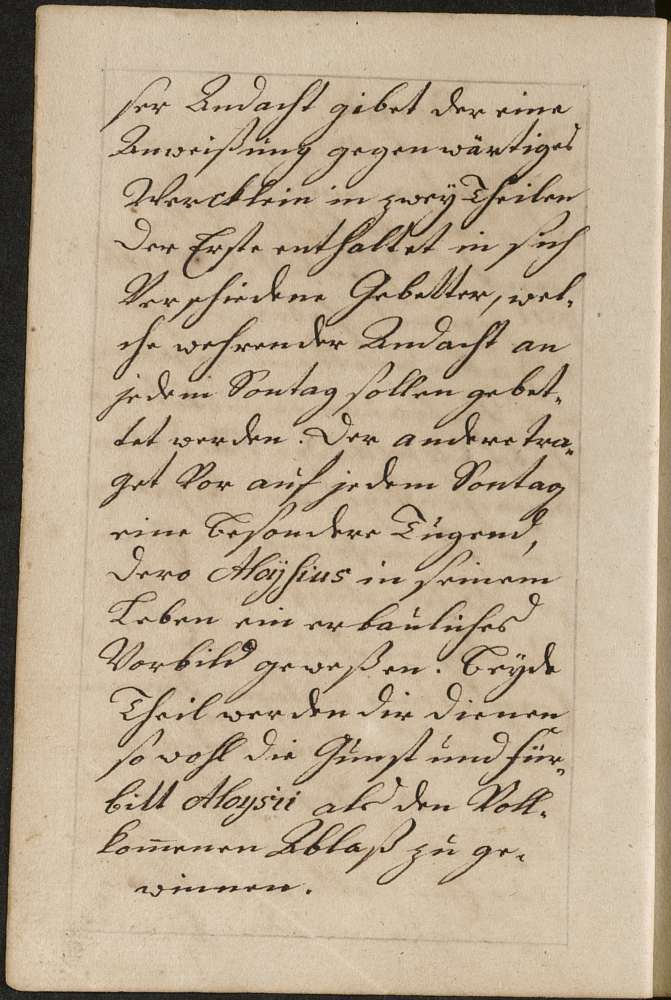 ser Andacht gibet der eine
Anweißung gegenwärtiges
Wercklein in zwey Theilen
Der Erste enthaltet in sich
Verschiedene Gebetter, wel-
che wehrender Andacht an
jedem Sontag sollen gebet-
tet werden. Der andere tra-
get Vor auf jedem Sontag
eine besondere Tugend,
Dero Aloÿsius in seinem
Leben ein erbauliches
Vorbild geweßen. beyde
Theil werden dir dienen
so wohl die Gunst und für-
bitt Aloysii als den Voll-
kom̅enen Ablaß zu ge-
winnen.